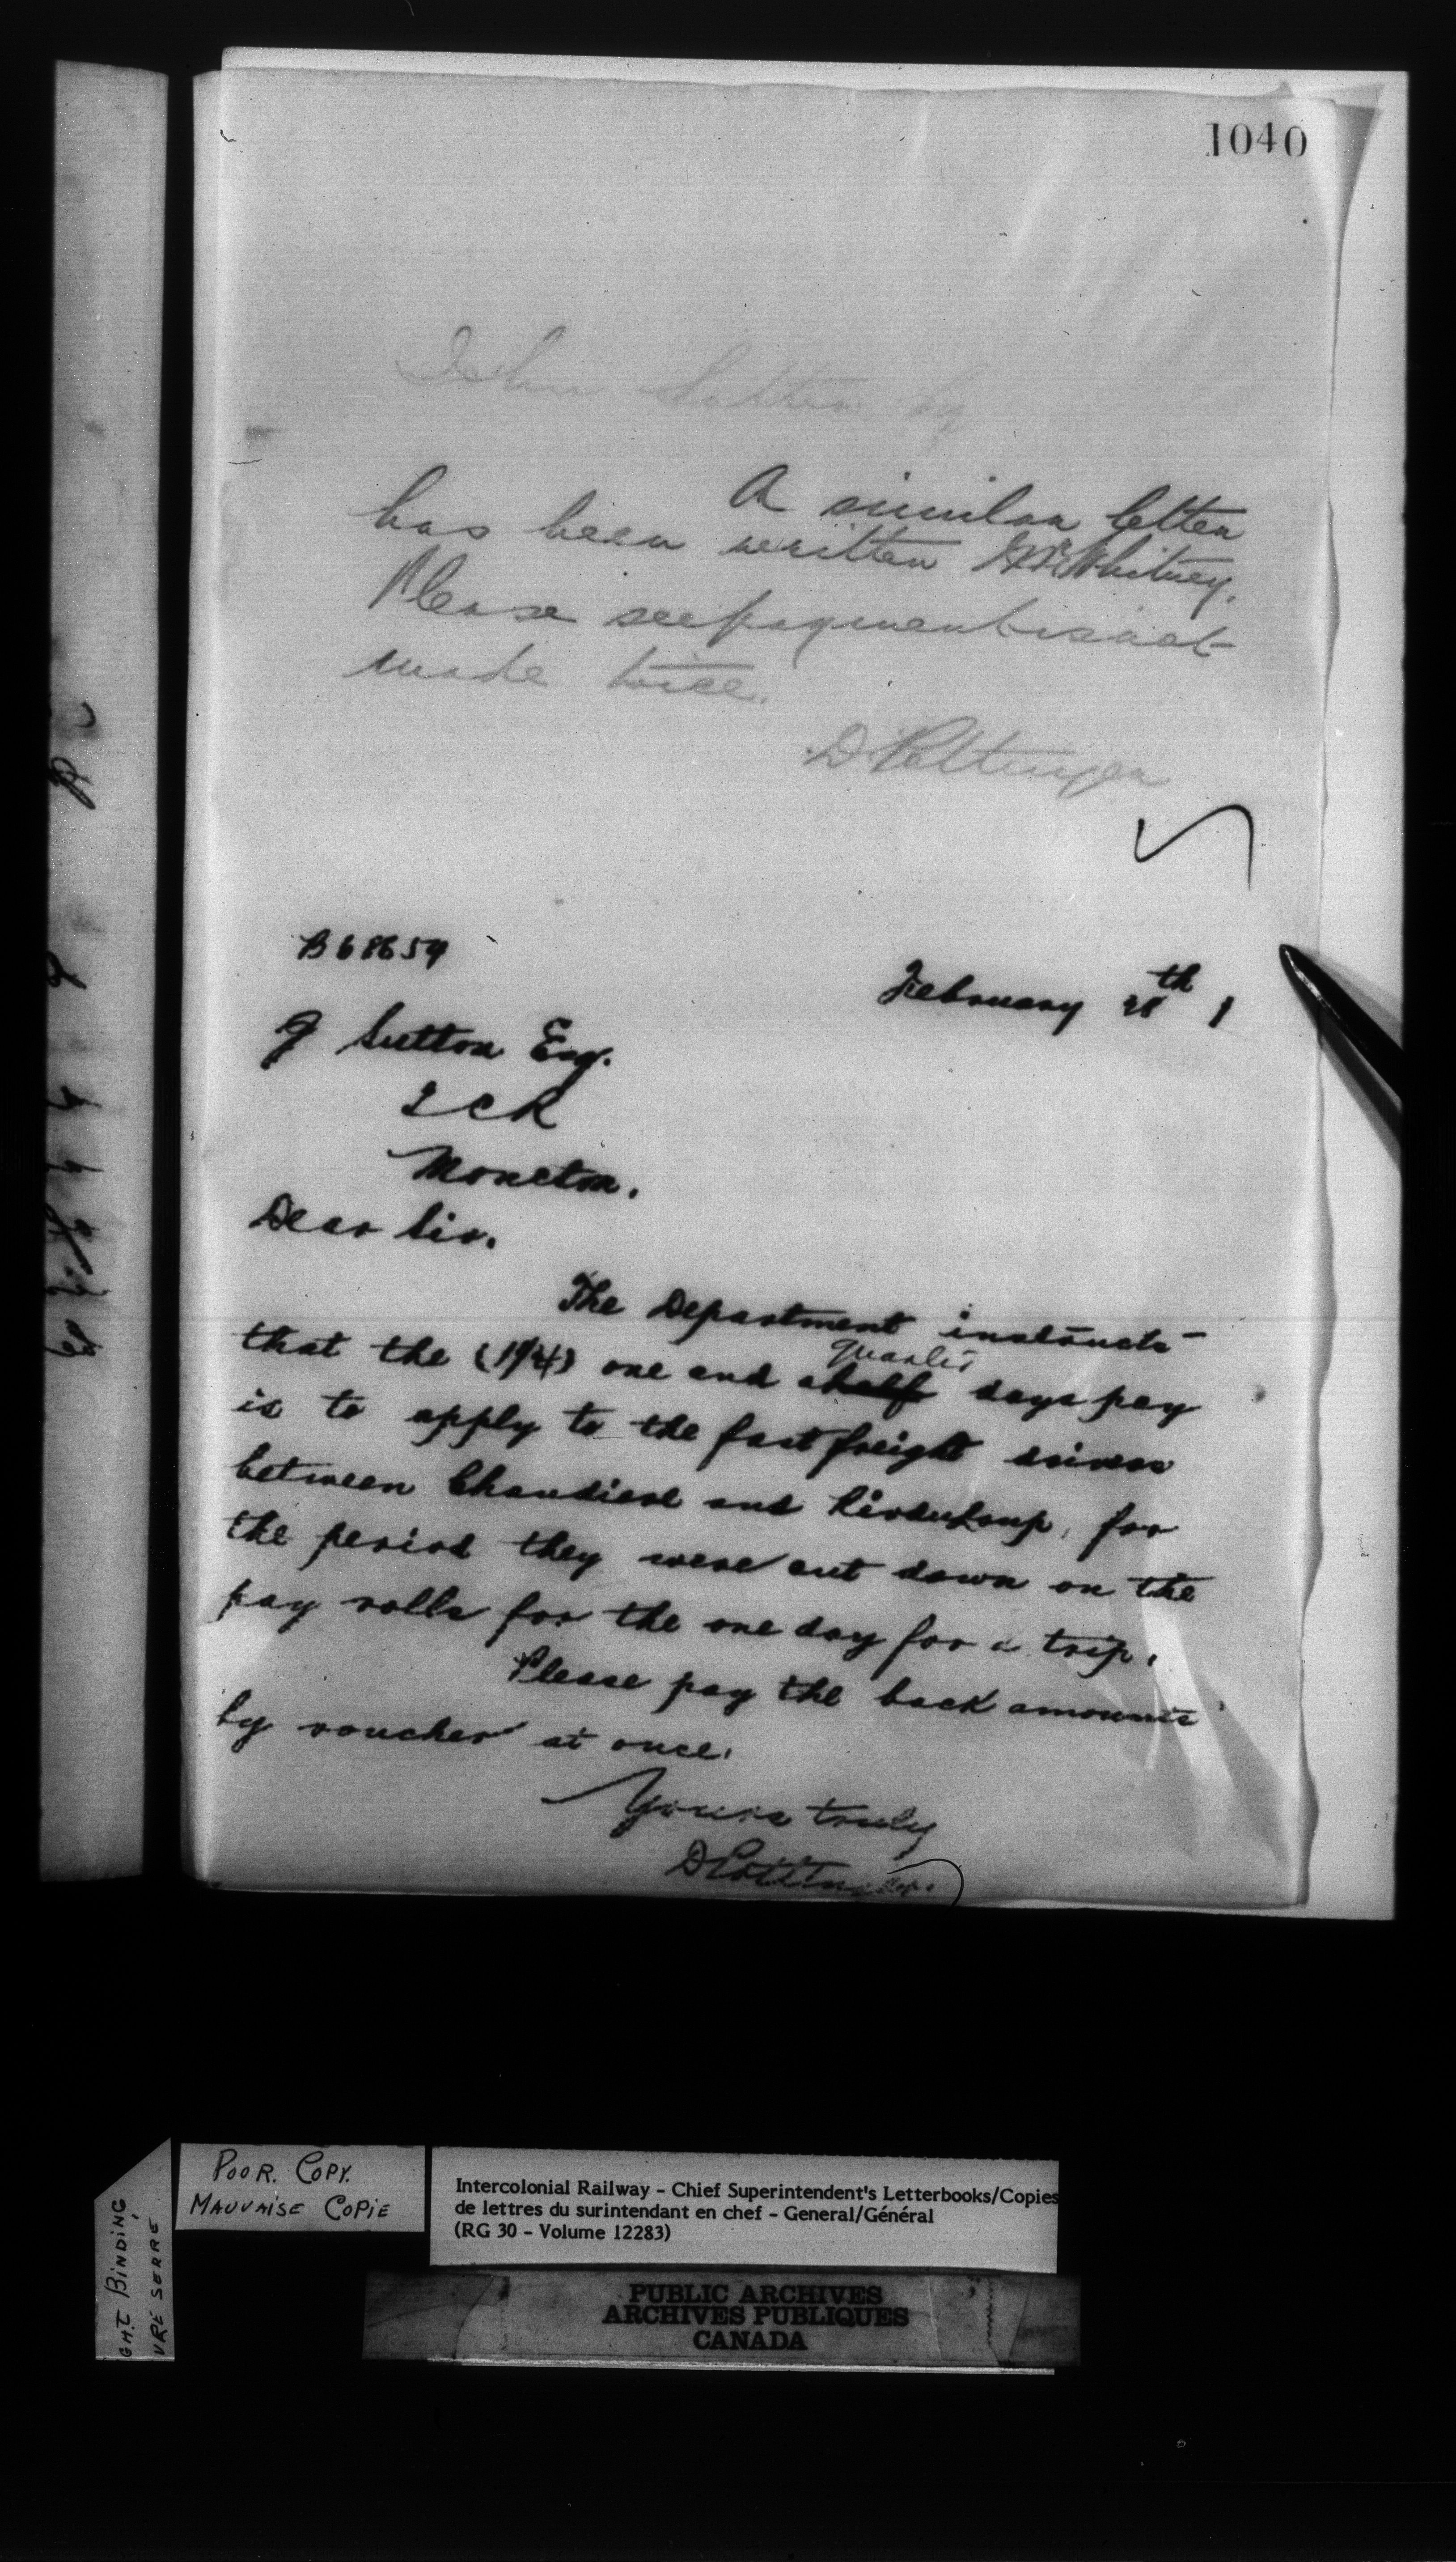 1040
John Sutton Esq
A similar letter
has been written Mr Whitney.
Please see payment is not
made twice.
D Pottinger
B68654
February 28th 1
J Sutton Esq.
I C R
Moncton.
Dear Sir.
The Department instructs
that the (1 1/4) one and a half quarter days pay
is to apply to the fast freight drivers
between Chaudiere and RivduLoup, for
the period they were cut down on the
pay rolls for the one day for a trip.
Please pay the back amounts
by voucher at once.
Yours truly
D Pottinger
POOR. COPY.
MAUVAISE COPIE
GHT BINDING
VRE SERRÉ
Intercolonial Railway - Chief Superintendent's Letterbooks/Copies
de lettres du surintendant en chef - General/Général
(RG 30 - Volume 12283)
PUBLIC ARCHIVES
ARCHIVES PUBLIQUES
CANADA